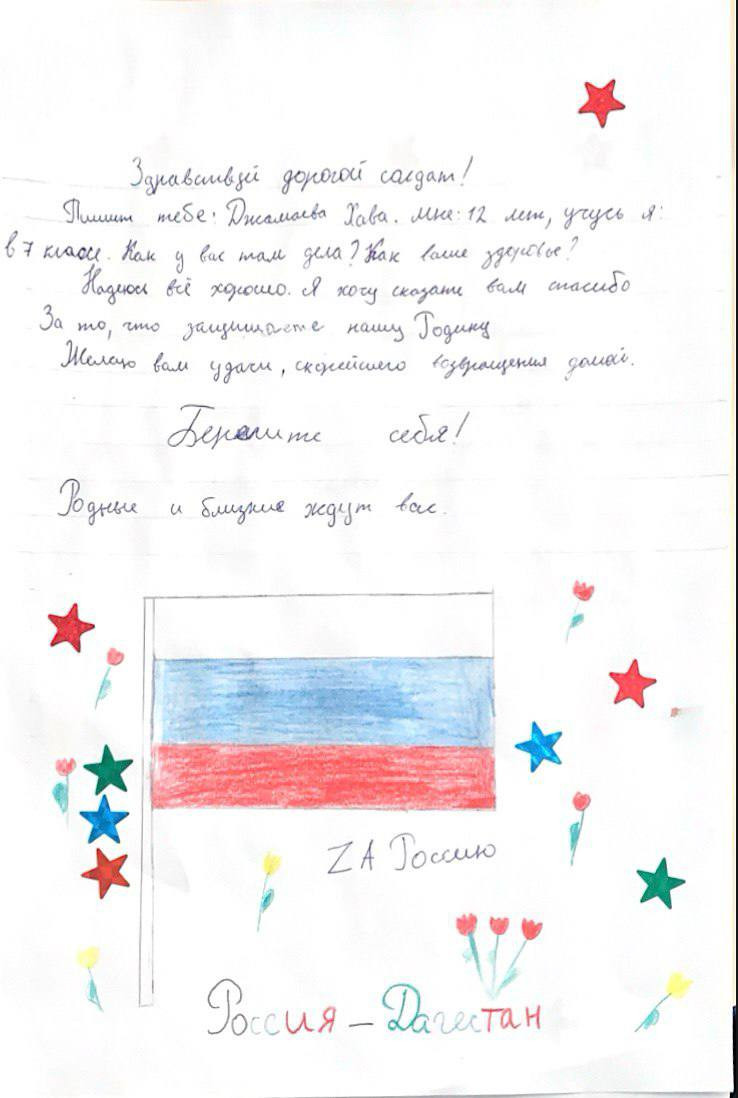 Здравствуй дорогой солдат!
Пишит тебе: Джамаева Хава. мне: 12 лет, учусь я:
в 7 классе. Как у вас там дела? Как ваше здоровье?
Надеюсь всё хорошо. Я хочу сказать вам спасибо
За то, что защищаете нашу Родину
Желаю вам удачи, скорейшего возвращения домой.
Берегите себя!
Родные и близкие ждут вас.
ZA Россию
Россия – Дагестан